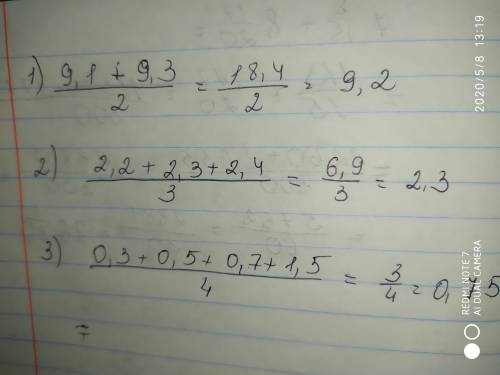 1) 9,1 + 9,3 / 2 = 18,4 / 2 = 9,2
2) 2,2 + 2,3 + 2,4 / 3 = 6,9 / 3 = 2,3
3) 0,3 + 0,5 + 0,7 + 1,5 / 4 = 3 / 4 = 0,75
=
2020/5/8 13:19
REDMI NOTE 7
AI DUAL CAMERA